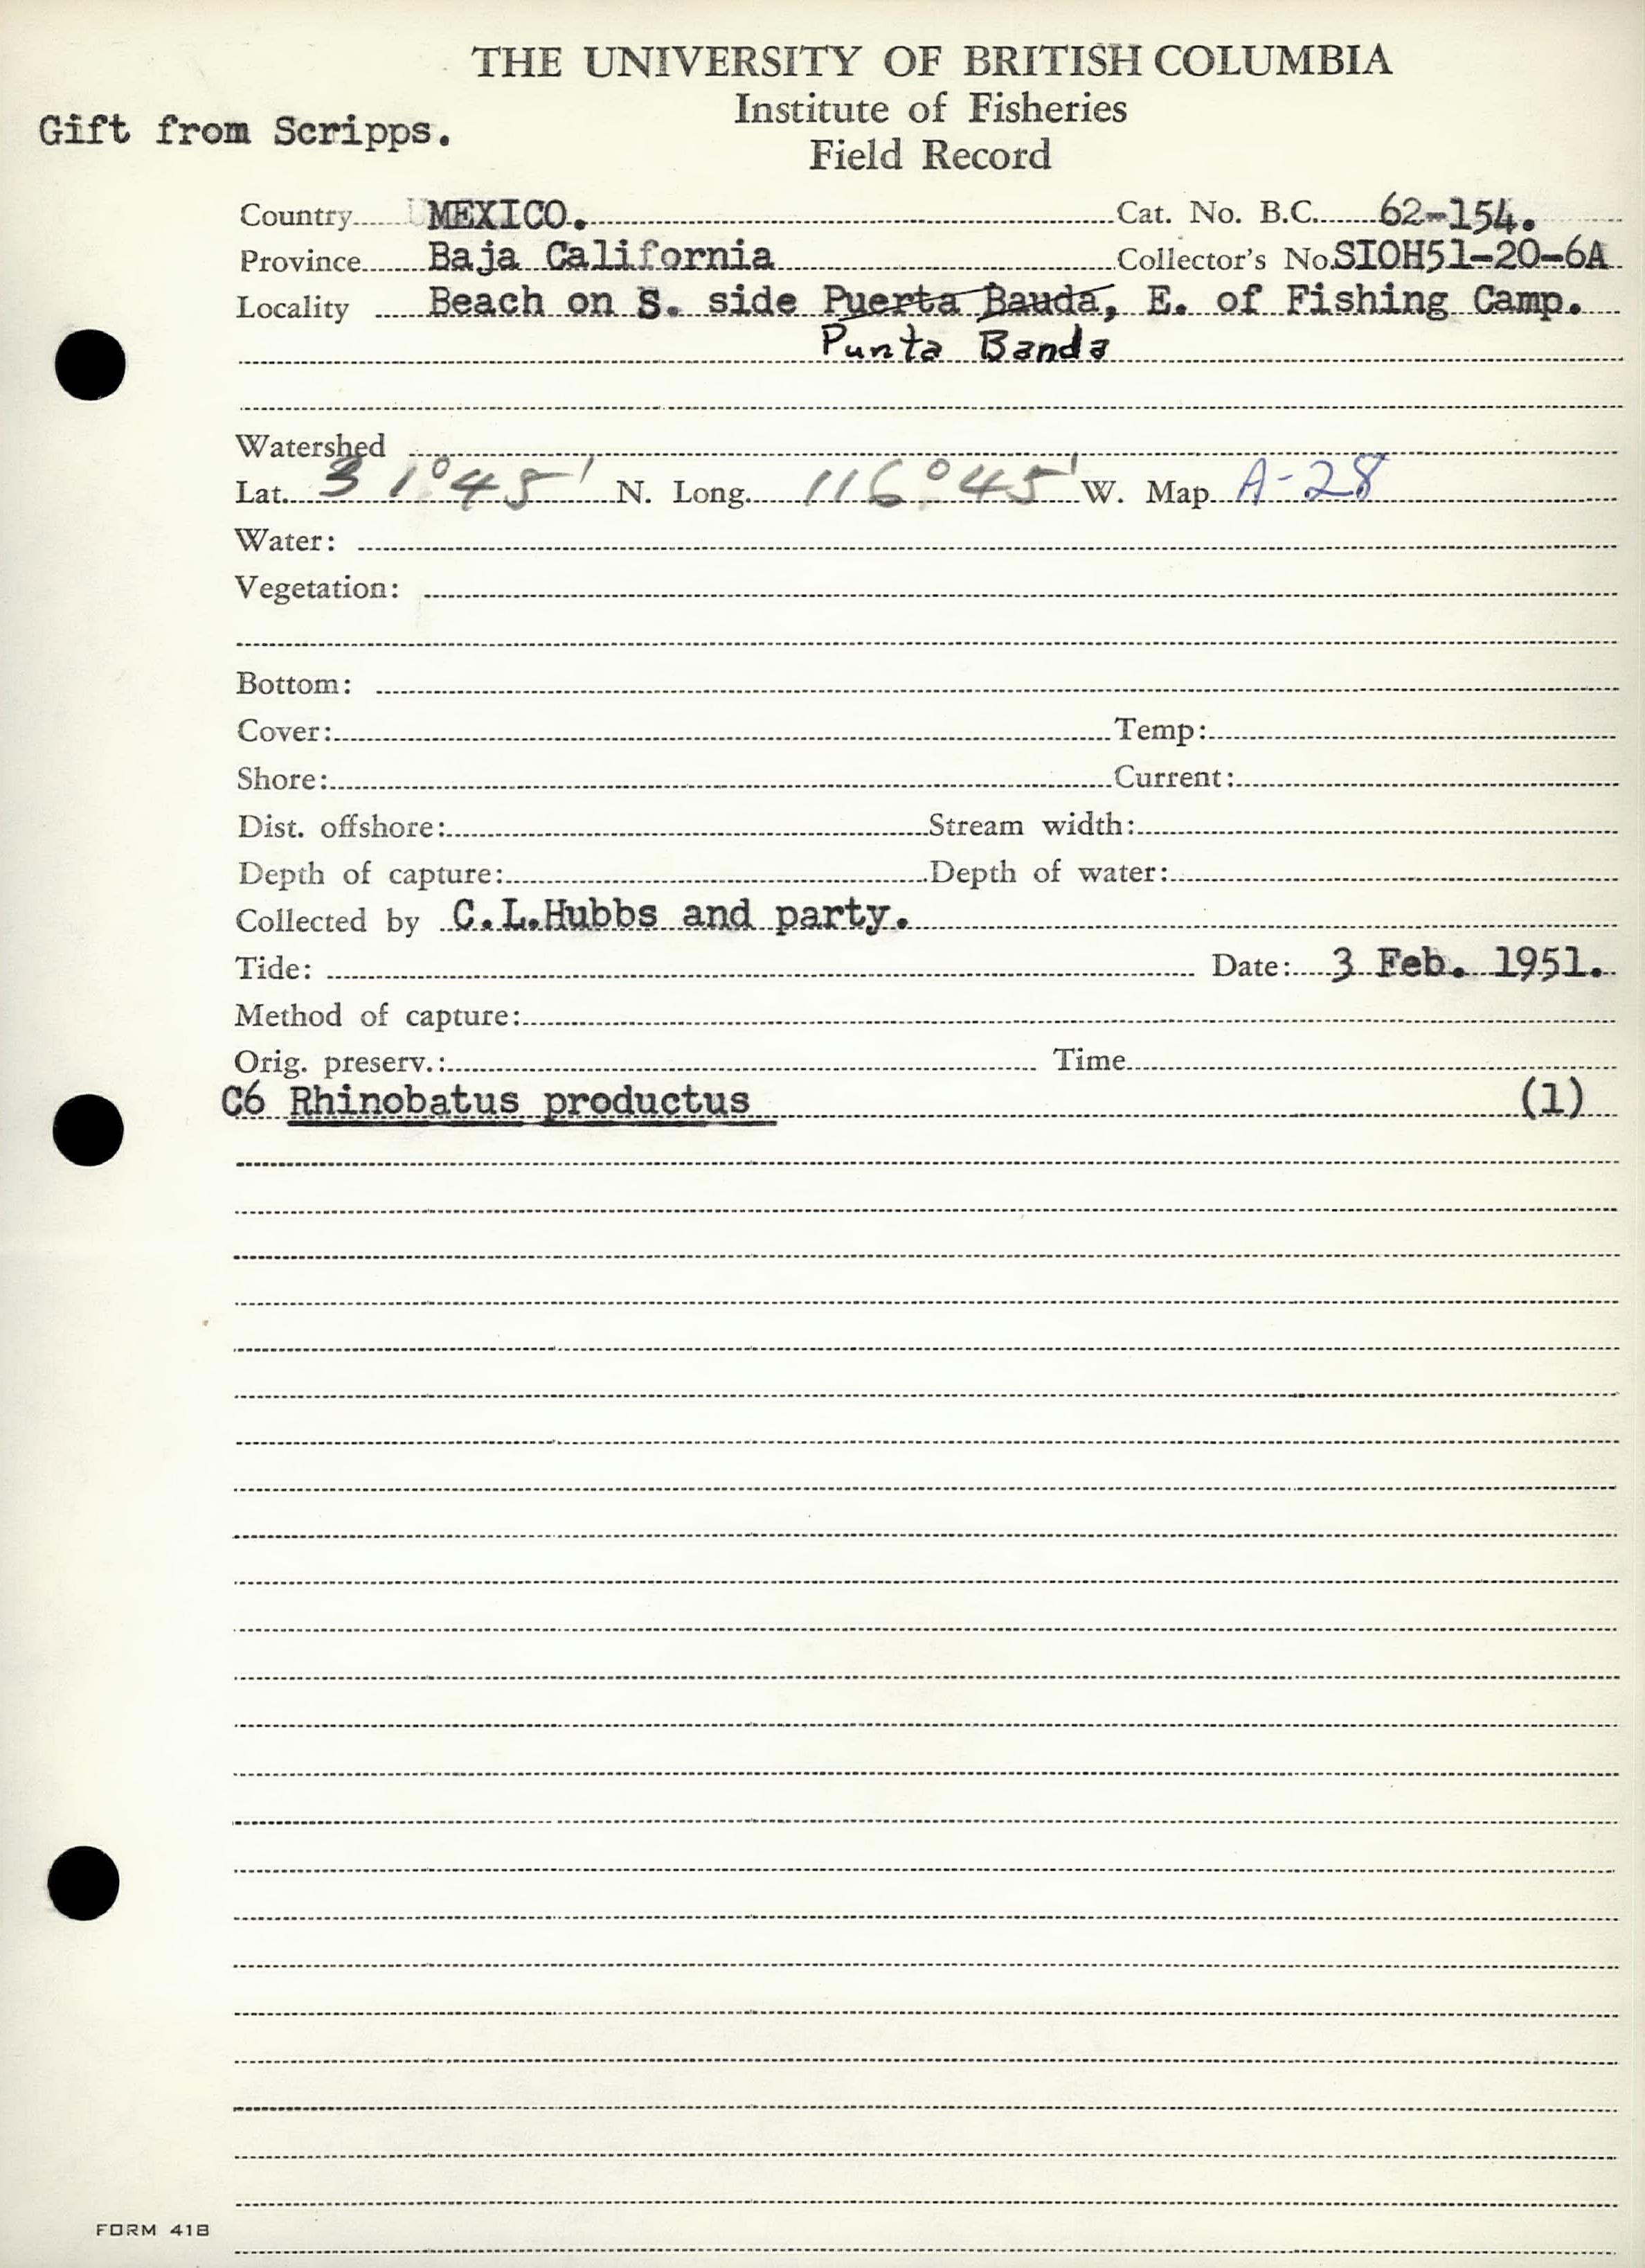 THE UNIVERSITY OF BRITISH COLUMBIA
Institute of Fisheries
Gift from Scripps.
Field Record
Country MEXICO. Cat. No. B.C. 62-154.
Province Baja California Collector's No. SIOH51-20-6A
Locality Beach on S. side Puerta Bauda, E. of Fishing Camp.
Punta Banda
Watershed
Lat. 31°45' N. Long. 116°45' W. Map A-28
Water:
Vegetation:
Bottom:
Cover: Temp:
Shore: Current:
Dist. offshore: Stream width:
Depth of capture: Depth of water:
Collected by C.L.Hubbs and party.
Tide: Date: 3 Feb. 1951.
Method of capture:
Orig. preserv.: Time
C6 Rhinobatus productus (1)
FORM 41B